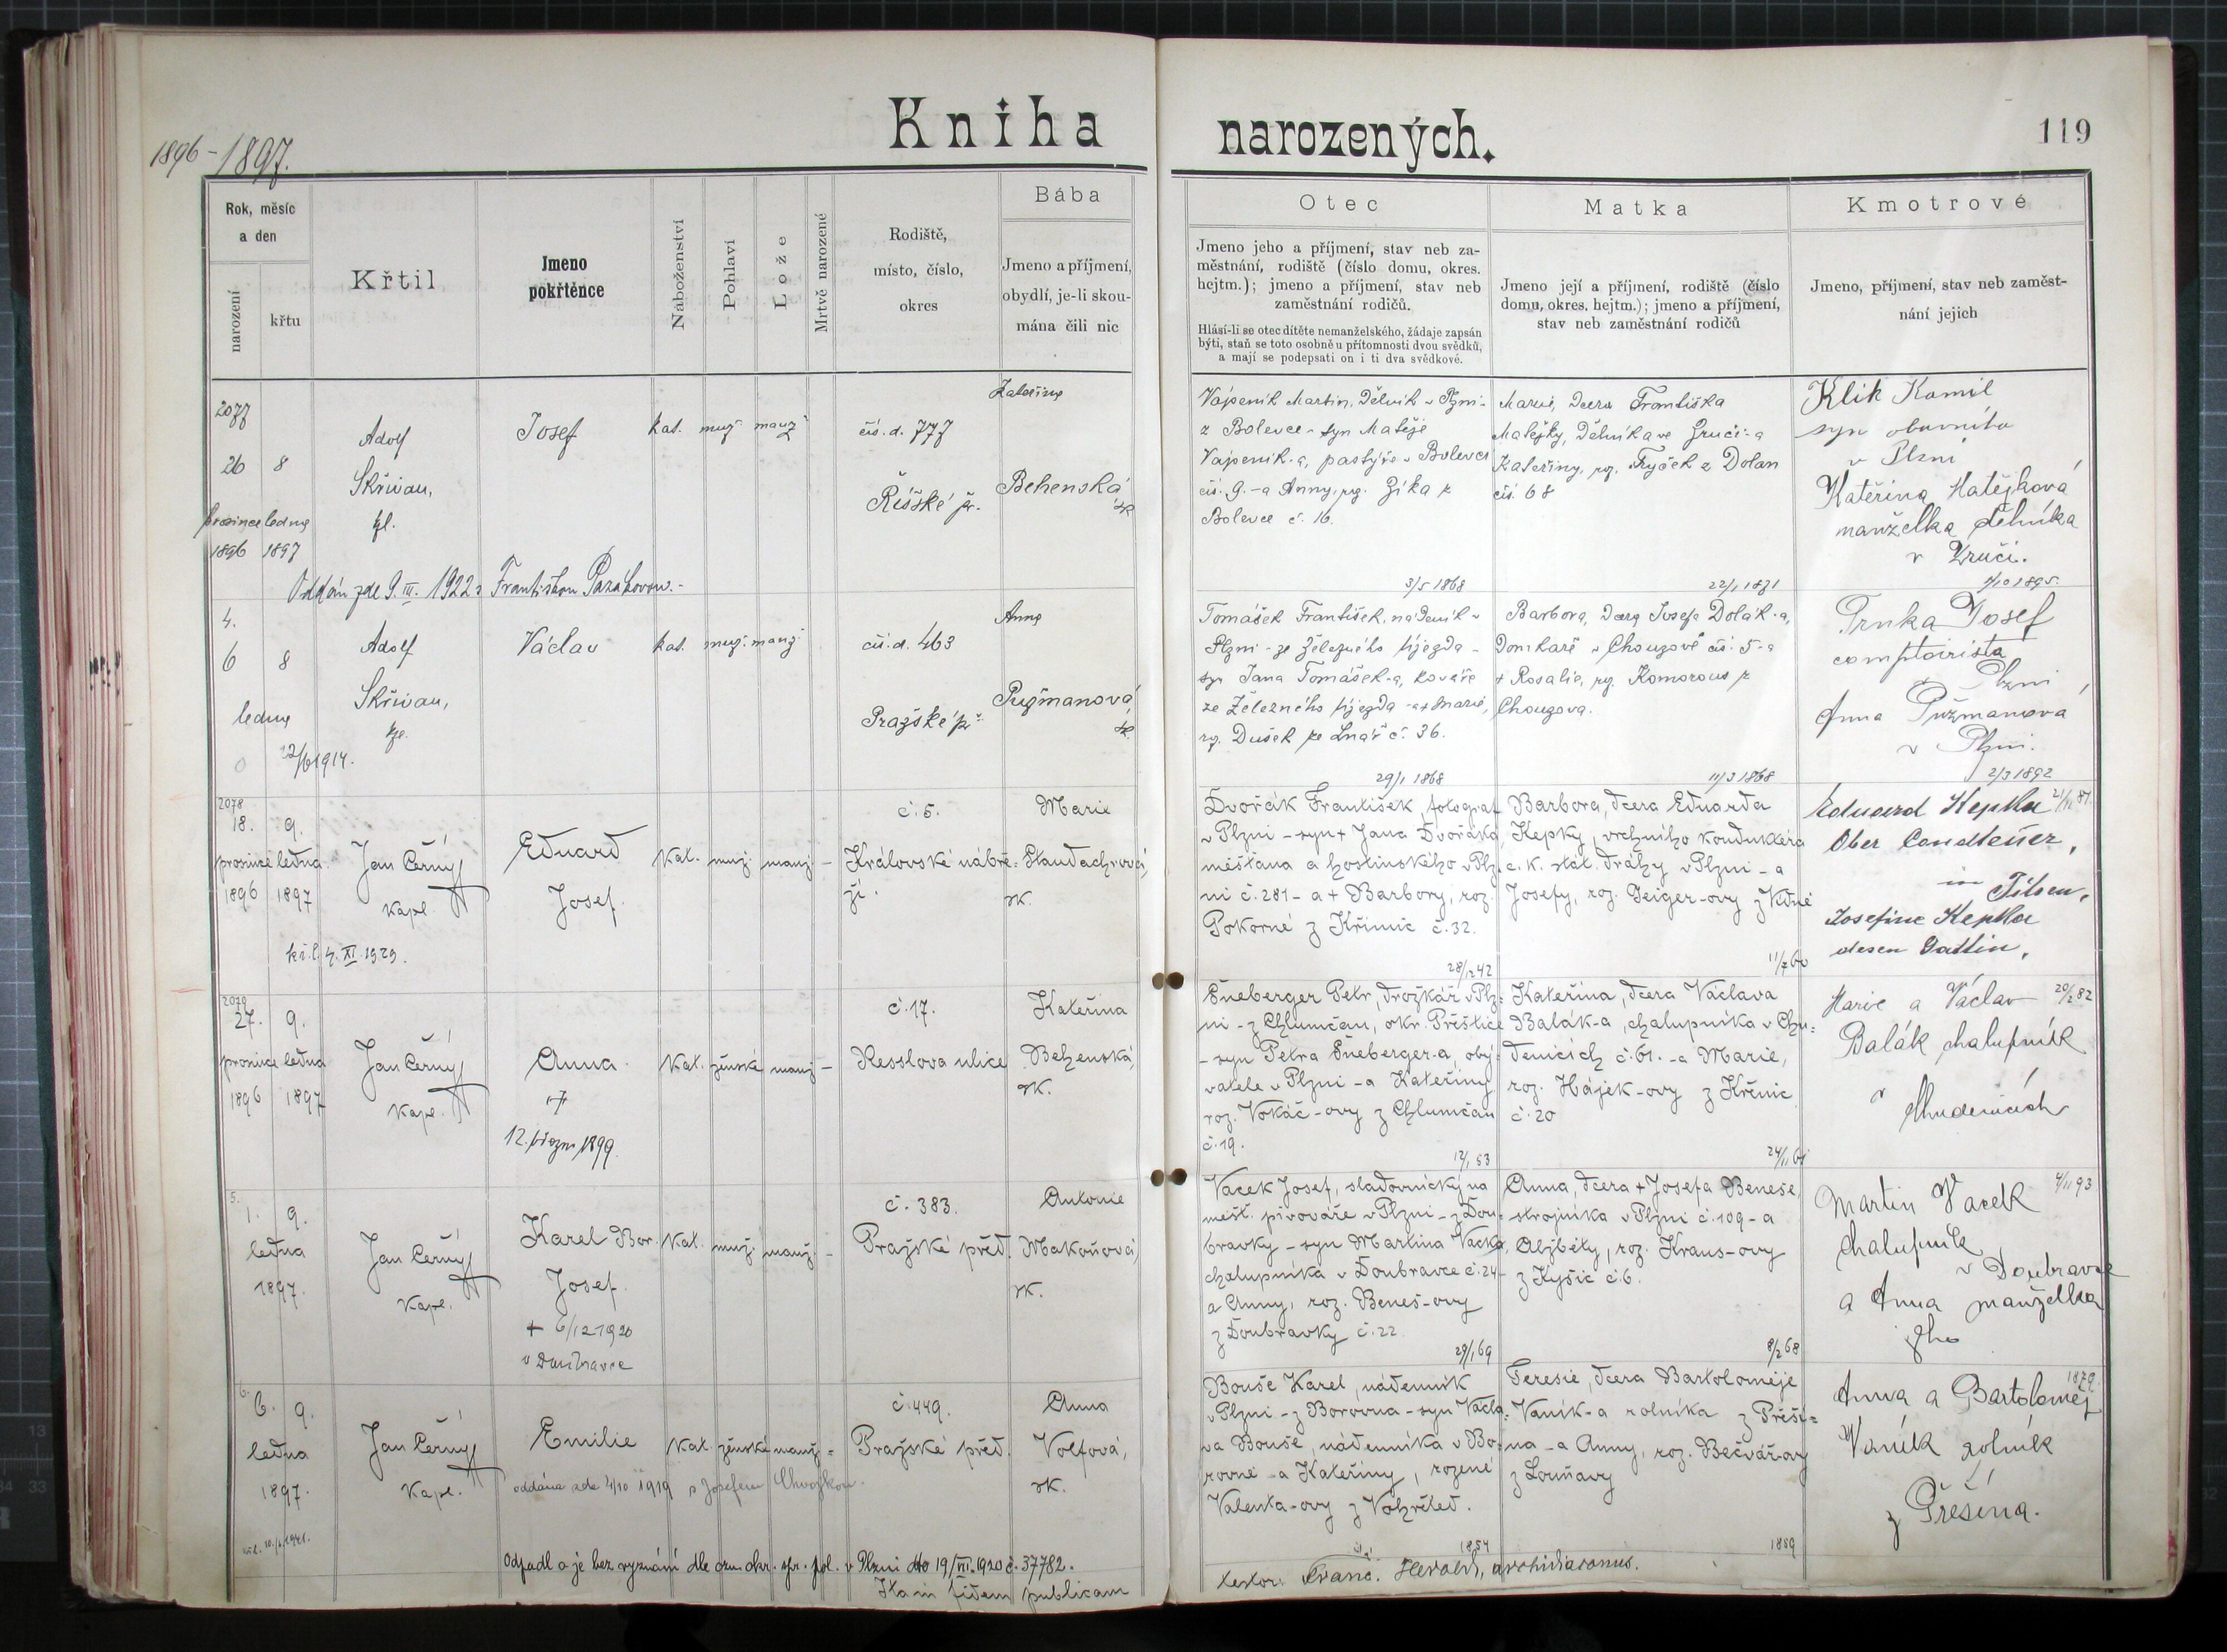 1896-1897.
Kniha narozených.
119
Rok, měsíc
a den
narození
křtu
Křtil
Jmeno
pokřtěnce
Náboženství
Pohlaví
Lože
Mrtvě narozené
Rodiště,
místo, číslo,
okres
Bába
Jmeno a příjmení,
obydlí, je-li skou-
mána čili nic
Otec
Jmeno jeho a příjmení, stav neb za-
městnání, rodiště (číslo domu, okres.
hejtm.); jmeno a příjmení, stav neb
zaměstnání rodičů.
Hlásí-li se otec dítěte nemanželského, žádaje zapsán
býti, staň se toto osobně u přítomnosti dvou svědků,
a mají se podepsati on i ti dva svědkové.
Matka
Jmeno její a příjmení, rodiště (číslo
domu, okres. hejtm.); jmeno a příjmení,
stav neb zaměstnání rodičů
Kmotrové
Jmeno, příjmení, stav neb zaměst-
nání jejich
2077
26 8
prosince ledna
1896 1897
Adolf
Skřivan,
kpl.
Josef
kat. muž. manž.
čís. d. 777
Říšské př.
Kateřina
Behenská
zk
Vápeník Martin, dělník v Plzni -
z Bolevce - syn Matěje
Vápeník-a, pastýře v Bolevci
čís. 9. - a Anny, rz. Zíka z
Bolevce č. 16.
3/5 1868
Marie, dcera Františka
Matějky, dělníka ve Zruči - a
Kateřiny, rz. Fryček z Dolan
čís. 68
22/1 1871
Klik Kamil
syn obuvníka
v Plzni
Kateřina Matějková
manželka dělníka
v Zruči.
1/10 1895.
Oddán zde 9. III. 1922 s Františkou
4.
6 8
ledna
22/6 1914.
Adolf
Skřivan,
kpl.
Václav
kat. muž. manž.
čís. d. 463
Pražské př.
Anna
Pužmanová,
zk.
Tomášek František, nádeník v
Plzni - ze Železného Újezda -
syn Jana Tomášek-a, kováře
ze Železného Újezda - a + Marie,
rz. Dušek ze Lnář č. 36.
29/1 1868
Barbora, dcera Josefa Dolák-a,
domkaře v Chouzově čís. 5 - a
+ Rosalie, rz. Komorous z
Chouzova.
11/3 1868
Trnka Josef
comptoirista
v Plzni
Anna Pužmanova
v Plzni.
2/3 1892
2078
18. 9.
prosince ledna
1896 1897
Jan Černý
kapl.
Eduard
Josef.
kat. muž. manž. -
č. 5.
Královské nábře=
ží.
Marie
Staudachrová,
zk.
Dvořák František, fotograf
v Plzni - syn + Jana Dvořáka,
měšťana a hostinského v Plz=
ni č. 281 - a + Barbory, roz.
Pokorné z Křimic č. 32.
28/12 42
Barbora, dcera Eduarda
Kepky, vrchního konduktéra
c. k. stát. dráhy v Plzni - a
Josefy, roz. Geiger-ovy z Vídně
11/7 60
Eduard Kepka 21/11 81.
Ober Conducteur,
in Pilsen,
Josefine Kepka
desen Gattin,
4. XI. 1929.
2079
27. 9.
prosince ledna
1896 1897
Jan Černý
kapl.
Anna
+
12. března 1899.
kat. ženské manž. -
č. 17.
Resslova ulice
Kateřina
Behenská,
zk.
Šneberger Petr, drožkář v Plz=
ni - z Chlumčan, okr. Přeštice
- syn Petra Šneberger-a, oby=
vatele v Plzni - a Kateřiny
roz. Vokáč-ovy z Chlumčan
č. 19.
12/1 53
Kateřina, dcera Václava
Balák-a, chalupníka v Chu=
denicích č. 61. - a Marie,
roz. Hájek-ovy z Křenic
č. 20
24/11 61
Marie a Václav 20/2 82
Balák chalupník
v Chudenicích
5.
1. 9.
ledna
1897.
Jan Černý
kapl.
Karel Bor.
Josef.
+ 6/12 1920
v Doubravce
kat. muž. manž. -
č. 383.
Pražské před.
Antonie
Makoňová,
zk.
Vacek Josef, sladovnický na
měšť. pivováře v Plzni - z Dou=
bravky - syn Martina Vacka,
chalupníka v Doubravce č. 24 -
a Anny, roz. Beneš-ovy
z Doubravky č. 22.
29/1 69
Anna, dcera + Josefa Beneše,
strojníka v Plzni č. 109 - a
Alžběty, roz. Kraus-ovy
z Kyšic č. 6.
8/2 68
Martin Vacek 4/11 93
chalupník
v Doubravce
a Anna manželka
jeho
6.
6. 9.
ledna
1897.
Jan Černý
kapl.
Emilie
kat. ženské manž. =
č. 449.
Pražské před.
Anna
Volfová,
zk.
oddána zde 4/10 1919 s Josefem Chvojkou.
Bouše Karel, nádenník
v Plzni - z Borovna - syn Václa=
va Bouše, nádenníka v Bo=
rovně - a Kateřiny, rozené
Valenta-ovy z Vohřeled.
1854
Teresie, dcera Bartoloměje
Vaník-a rolníka z Přeší=
na - a Anny, roz. Bečvář-ovy
z Louňavy
1859
1879.
Anna a Bartoloměj
Vaník rolník
z Přešína.
Odpadl a je bez vyznání dle ozn. okr. spr. pol. v Plzni dto 19/VII. 1920 č. 37782.
Ita in fidem publicam
testor: Franc. Herold, archidiaconus.